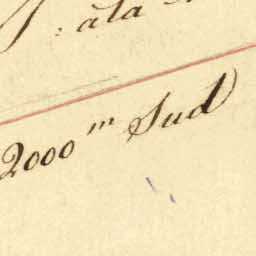 : à la
2000 m Sud